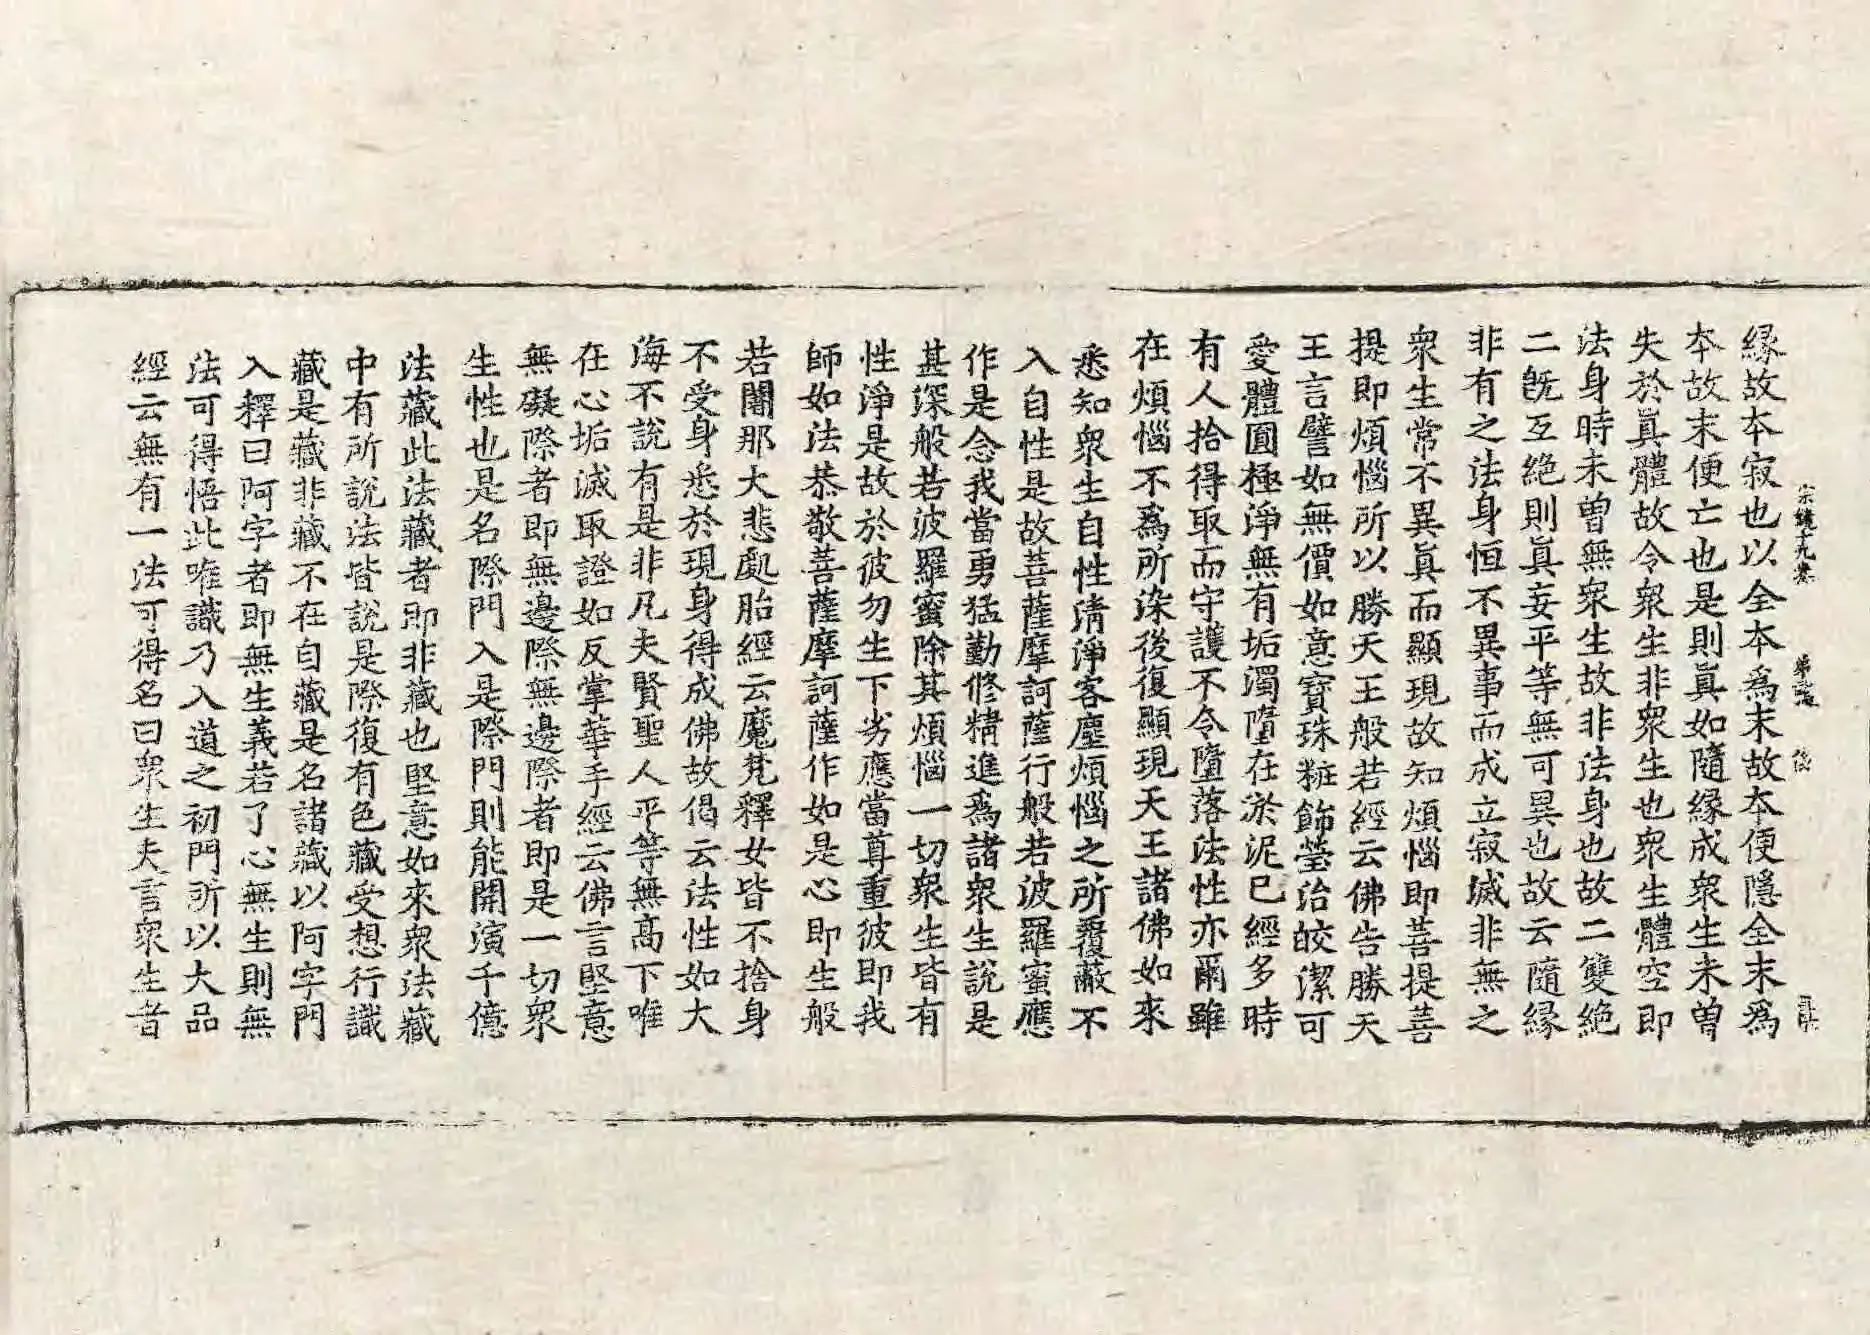 宗鏡十九卷
緣故本寂也以全本爲末故本便隱全末爲
本故末便亡也是則眞如隨緣成衆生未曽
失於眞體故令衆生非衆生也衆生體空即
法身時未曽無衆生故非法身也故二雙絶
二旣互絶則眞妄平等無可異也故云隨緣
非有之法身恒不異事而成立寂滅非無之
衆生常不異眞而顯現故知煩惱即菩提菩
提即煩惱所以勝天王般若經云佛告勝天
王言譬如無價如意寶珠粧飾瑩治皎潔可
愛體圓極淨無有垢濁墮在淤泥已經多時
有人拾得取而守護不令墮落法性亦爾雖
在煩惱不爲所染後復顯現天王諸佛如來
悉知衆生自性清淨客塵煩惱之所覆蔽不
入自性是故菩薩摩訶薩行般若波羅蜜應
作是念我當勇猛勤修精進爲諸衆生說是
甚深般若波羅蜜除其煩惱一切衆生皆有
性淨是故於彼勿生下劣應當尊重彼即我
師如法恭敬菩薩摩訶薩作如是心即生般
若闍那大悲處胎經云魔梵釋女皆不捨身
不受身悉於現身得成佛故偈云法性如大
海不說有是非凡夫賢聖人平等無高下唯
在心垢滅取證如反掌華手經云佛言堅意
無礙際者即無邊際無邊際者即是一切衆
生性也是名際門入是際門則能開演千億
法藏此法藏者即非藏也堅意如來衆法藏
中有所說法皆說是際復有色藏受想行識
藏是藏非藏不在自藏是名諸藏以阿字門
入釋曰阿字者即無生義若了心無生則無
法可得悟此唯識乃入道之初門所以大品
經云無有一法可得名曰衆生夫言衆生者